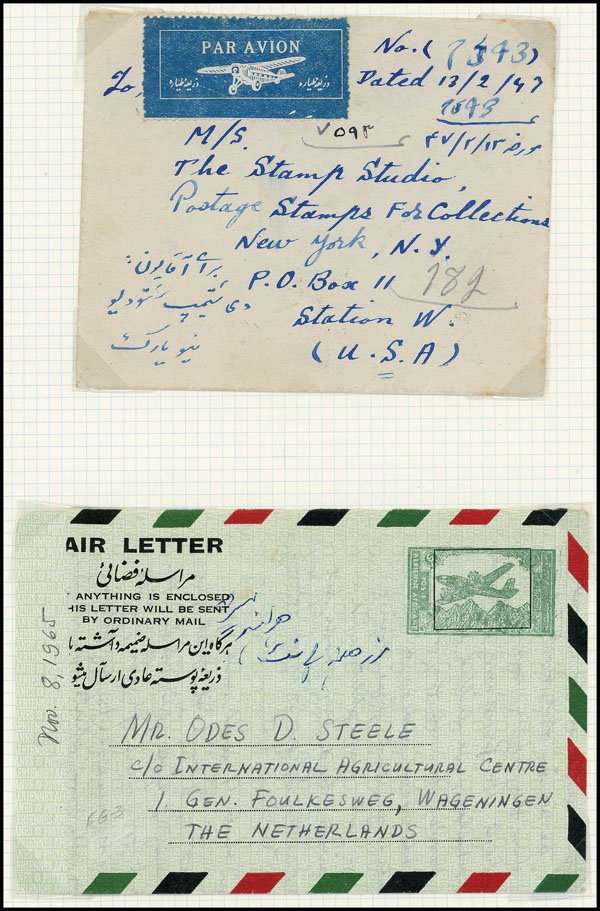 PAR AVION
ذریعهٔ طیاره ذریعهٔ طیاره
No. ( 7593 )
To, Dated 13/2/47
7593
۷۵۹۳
۴۷/۲/۱۳
M/S.
The Stamp Studio,
Postage Stamps For Collections
New York, N.Y.
P.O. Box 11
182
Station W.
(U.S.A)
نیویارک
AIR LETTER
مراسلهٔ فضائی
F ANYTHING IS ENCLOSED
HIS LETTER WILL BE SENT
BY ORDINARY MAIL
هرگاه این مراسله ضمیمه داشته با
ذریعهٔ پوسته عادی ارسال میشو
POSTES
AERIENNE AFGHANE
Nov. 8, 1965
MR. ODES D. STEELE
c/o INTERNATIONAL AGRICULTURAL CENTRE
1 GEN. FOULKESWEG, WAGENINGEN
THE NETHERLANDS
FG3